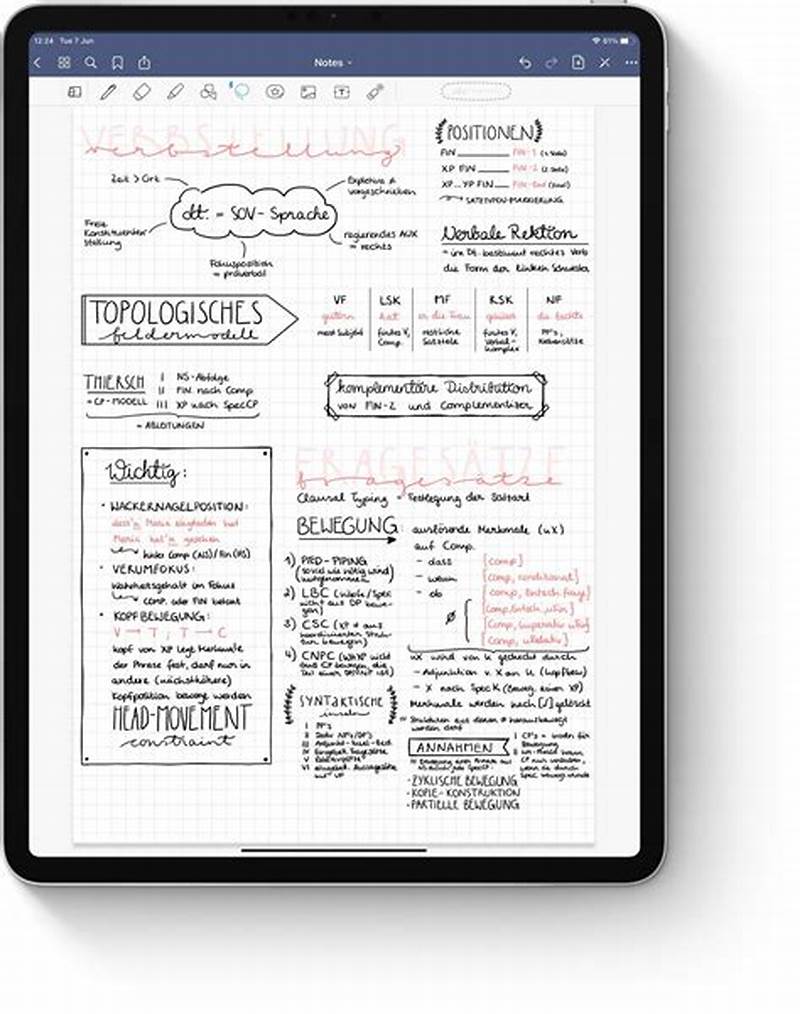 12:24 Tue 7 Jun
61%
Notes
VERBSTELLUNG
verbstellung
Zeit > Ort
Expletiva &
vorgeschrieben
dt. = SOV-Sprache
Freie
Konstituenten
stellung
regierendes AUX
= rechtes
Fokusposition
= präverbal
POSITIONEN
FIN FIN-1
XP FIN FIN-2
XP...YP FIN FIN-End
SATZENDEN-MARKIERUNG
Verbale Rektion
= im Dt. bestimmt rechtes Verb
die Form der linken Schwester
TOPOLOGISCHES
feldermodell
VF LSK MF RSK NF
gestern hat er die Frau
meist Subjekt
finites V,
Comp.
restliche
Satzteile
finites V,
verbal-
komplex
PP's,
Nebensätze
THIERSCH
= CP-MODELL
I NS-Abfolge
II FIN nach Comp
III XP nach SpecCP
= ABLEITUNGEN
komplementäre Distribution
von FIN-2 und Complementiser
Wichtig:
• WACKERNAGELPOSITION:
dass'n Maria eingeladen hat
Maria hat'n gesehen
hinter Comp (NS)/Fin (HS)
• VERUMFOKUS:
Wahrheitsgehalt im Fokus
Comp. oder FIN betont
• KOPFBEWEGUNG:
V → T ; T → C
Kopf von XP legt Merkmale
der Phrase fest, darf nur in
andere (nächsthöhere)
Kopfposition bewegt werden
HEAD-MOVEMENT
constraint
FRAGESÄTZE
fragesätze
Clausal Typing = Festlegung der Satzart
BEWEGUNG:
auslösende Merkmale (uX)
auf Comp.
- dass [comp]
- wenn [comp, konditional]
- ob [comp, entsch. frage]
∅
[comp, entsch, uFin]
[comp, imperativ uFin]
[comp, relativ]
1) PIED-PIPING
(soviel wie nötig wird
mitgenommen)
2) LBC
nicht aus DP bewe-
gen)
3) CSC (XP & aus
koordinierten Struk-
turen bewegt)
4) CNPC (WhXP nicht
aus CP bewegen, die
uX wird von K gecheckt durch
- Adjunktion v. X an K (kopfbew)
- X nach Spec K (Beweg. einer XP)
Merkmale werden nach [√] gelöscht
SYNTAKTISCHE
inseln
I PP's
ANNAHMEN
- ZYKLISCHE BEWEGUNG
- KOPIE-KONSTRUKTION
- PARTIELLE BEWEGUNG